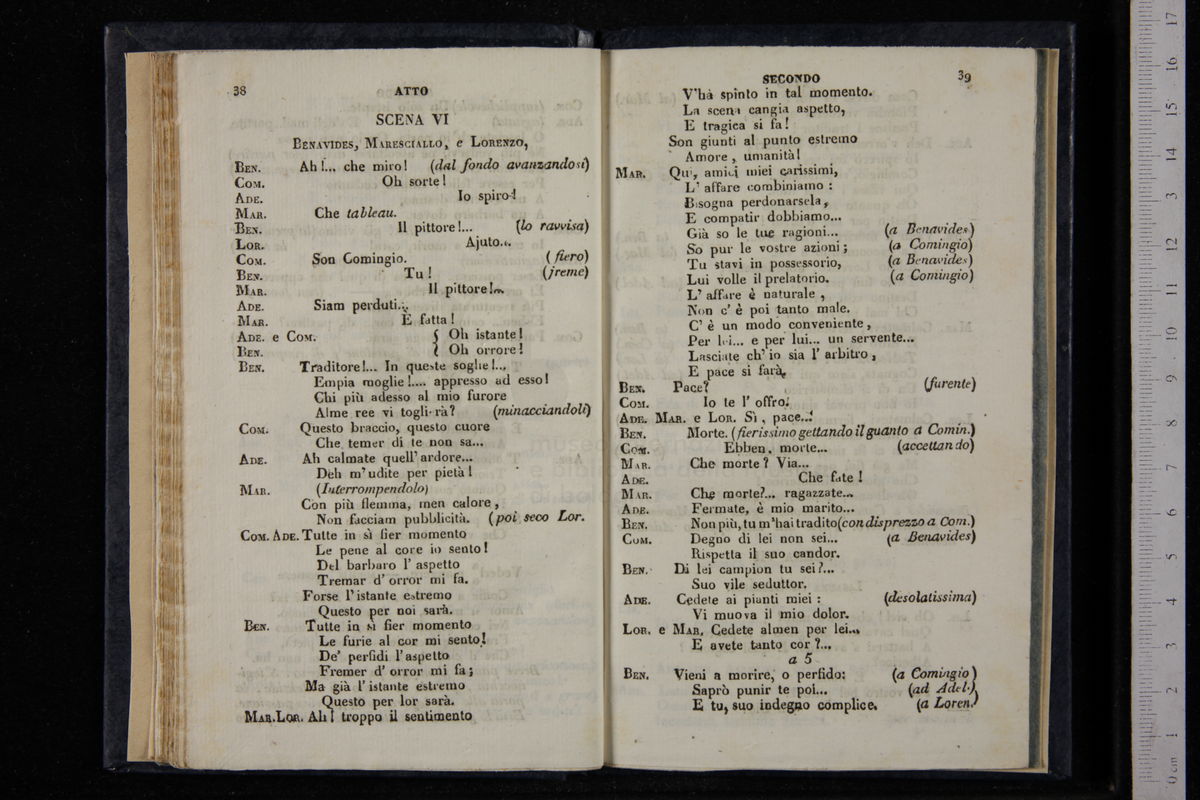 38 ATTO
SCENA VI
BENAVIDES, MARESCIALLO, e LORENZO,
BEN. Ah!... che miro! (dal fondo avanzandosi)
COM. Oh sorte!
ADE. Io spiro!
MAR. Che tableau.
BEN. Il pittore!... (lo ravvisa)
LOR. Ajuto...
COM. Son Comingio. (fiero)
BEN. Tu! (freme)
MAR. Il pittore!...
ADE. Siam perduti...
MAR. È fatta!
ADE. e COM. { Oh istante!
BEN. { Oh orrore!
BEN. Traditore!... In queste soglie!...
Empia moglie!.... appresso ad esso!
Chi più adesso al mio furore
Alme ree vi toglierà? (minacciandoli)
COM. Questo braccio, questo cuore
Che temer di te non sa...
ADE. Ah calmate quell' ardore...
Deh m' udite per pietà!
MAR. (Interrompendolo)
Con più flemma, men calore,
Non facciam pubblicità. (poi seco Lor.
COM. ADE. Tutte in sì fier momento
Le pene al core io sento!
Del barbaro l' aspetto
Tremar d' orror mi fa.
Forse l' istante estremo
Questo per noi sarà.
BEN. Tutte in sì fier momento
Le furie al cor mi sento!
De' perfidi l' aspetto
Fremer d' orror mi fa;
Ma già l' istante estremo
Questo per lor sarà.
MAR. LOR. Ah! troppo il sentimento
SECONDO 39
V'hà spinto in tal momento.
La scena cangia aspetto,
E tragica si fa!
Son giunti al punto estremo
Amore, umanità!
MAR. Quì, amici miei carissimi,
L' affare combiniamo:
Bisogna perdonarsela,
E compatir dobbiamo...
Già so le tue ragioni... (a Benavides)
So pur le vostre azioni; (a Comingio)
Tu stavi in possessorio, (a Benavides)
Lui volle il prelatorio. (a Comingio)
L' affare è naturale,
Non c' è poi tanto male.
C' è un modo conveniente,
Per lei... e per lui... un servente...
Lasciate ch' io sia l' arbitro,
E pace si farà.
BEN. Pace? (furente)
COM. Io te l' offro!
ADE. MAR. e LOR. Sì, pace...!
BEN. Morte. (fierissimo gettando il guanto a Comin.)
COM. Ebben, morte... (accettando)
MAR. Che morte? Via...
ADE. Che fate!
MAR. Che morte?... ragazzate...
ADE. Fermate, è mio marito...
BEN. Non più, tu m'hai tradito (con disprezzo a Com.)
COM. Degno di lei non sei... (a Benavides)
Rispetta il suo candor.
BEN. Di lei campion tu sei?...
Suo vile seduttor.
ADE. Cedete ai pianti miei: (desolatissima)
Vi muova il mio dolor.
LOR. e MAR. Cedete almen per lei...
E avete tanto cor?...
a 5
BEN. Vieni a morire, o perfido: (a Comingio)
Saprò punir te poi... (ad Adel.)
E tu, suo indegno complice. (a Loren.)